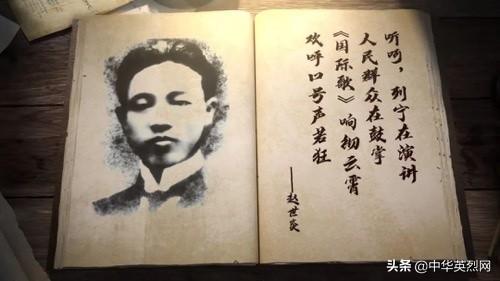 听啊，列宁在演讲
人民群众在鼓掌
《国际歌》响彻云霄
欢呼口号声若狂
——赵世炎
头条@中华英烈网